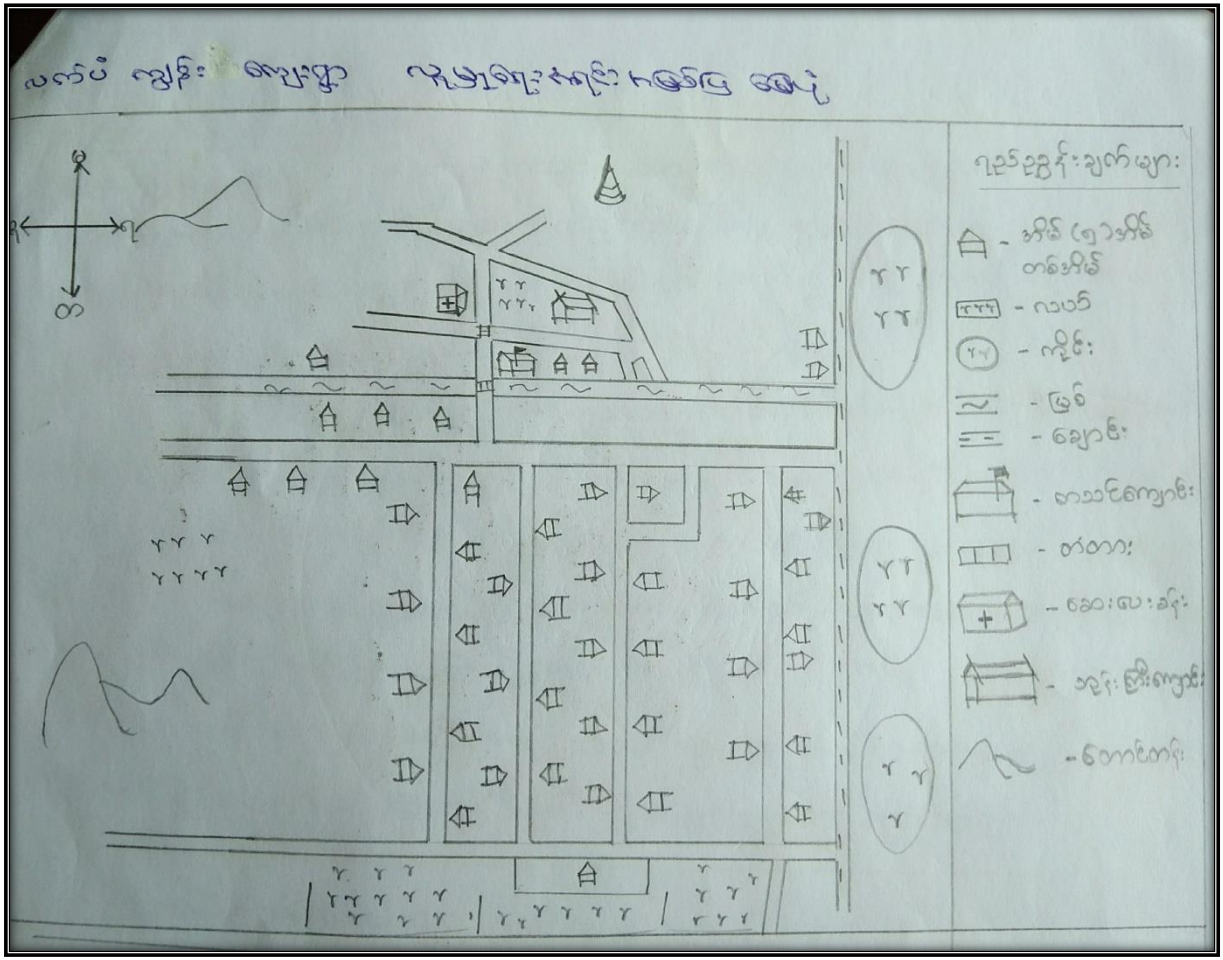 လက်ပံ ကျွန်း ကျေးရွာ လူမှုရေးအရင်းအမြစ်ပြ မြေပုံ
ရည်ညွှန်းချက်များ
အိမ် (၅) အိမ်
တစ်အိမ်
- လယ်
- ကိုင်း
- မြစ်
- ချောင်း
- စာသင်ကျောင်း
- တံတား
- ဆေးပေးခန်း
- ဘုန်းကြီးကျောင်း
- တောင်တန်း